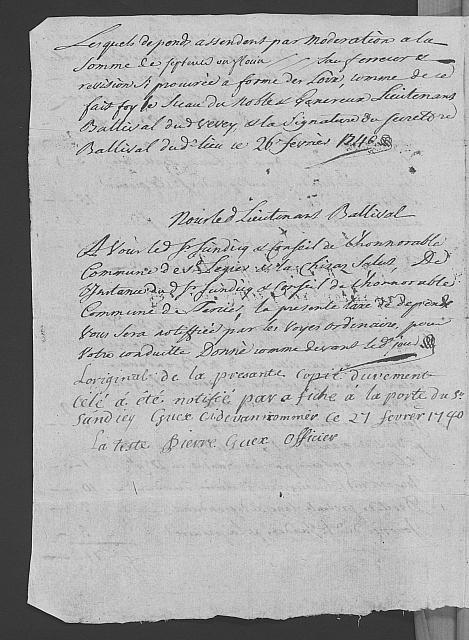 Lesquels depends assendent par moderation a la
Somme de septante un florin // Sauf erreur et
revision Si procurée a forme des Loix, comme de ce
fait foy le Sceau du Noble & Genereux Lieutenant
Ballival dud Vevey, & la Signature du Secretaire
Ballival dud. lieu ce 26e fevrier 1740
Nous led Lieutenant Ballival
A Vous led Sr Sindicq & Conseil de l'honnorable
Commune de St Legier & la Chiesaz Salut, De
l'instance du d Sr Sindicq & Conseil de l'honnorable
Commune de la presente taxe de depends
Vous Sera notiffiée par les voyes ordinaires, pour
Votre conduitte Donné comme devant led. jour
Loriginal de la presante Copie duvement
Célé a été notifiée par a fiche a la porte du Sr
Sandicq Guex Cidevan nommer Ce 27 fevrer 1740
La teste Pierre Guex officier